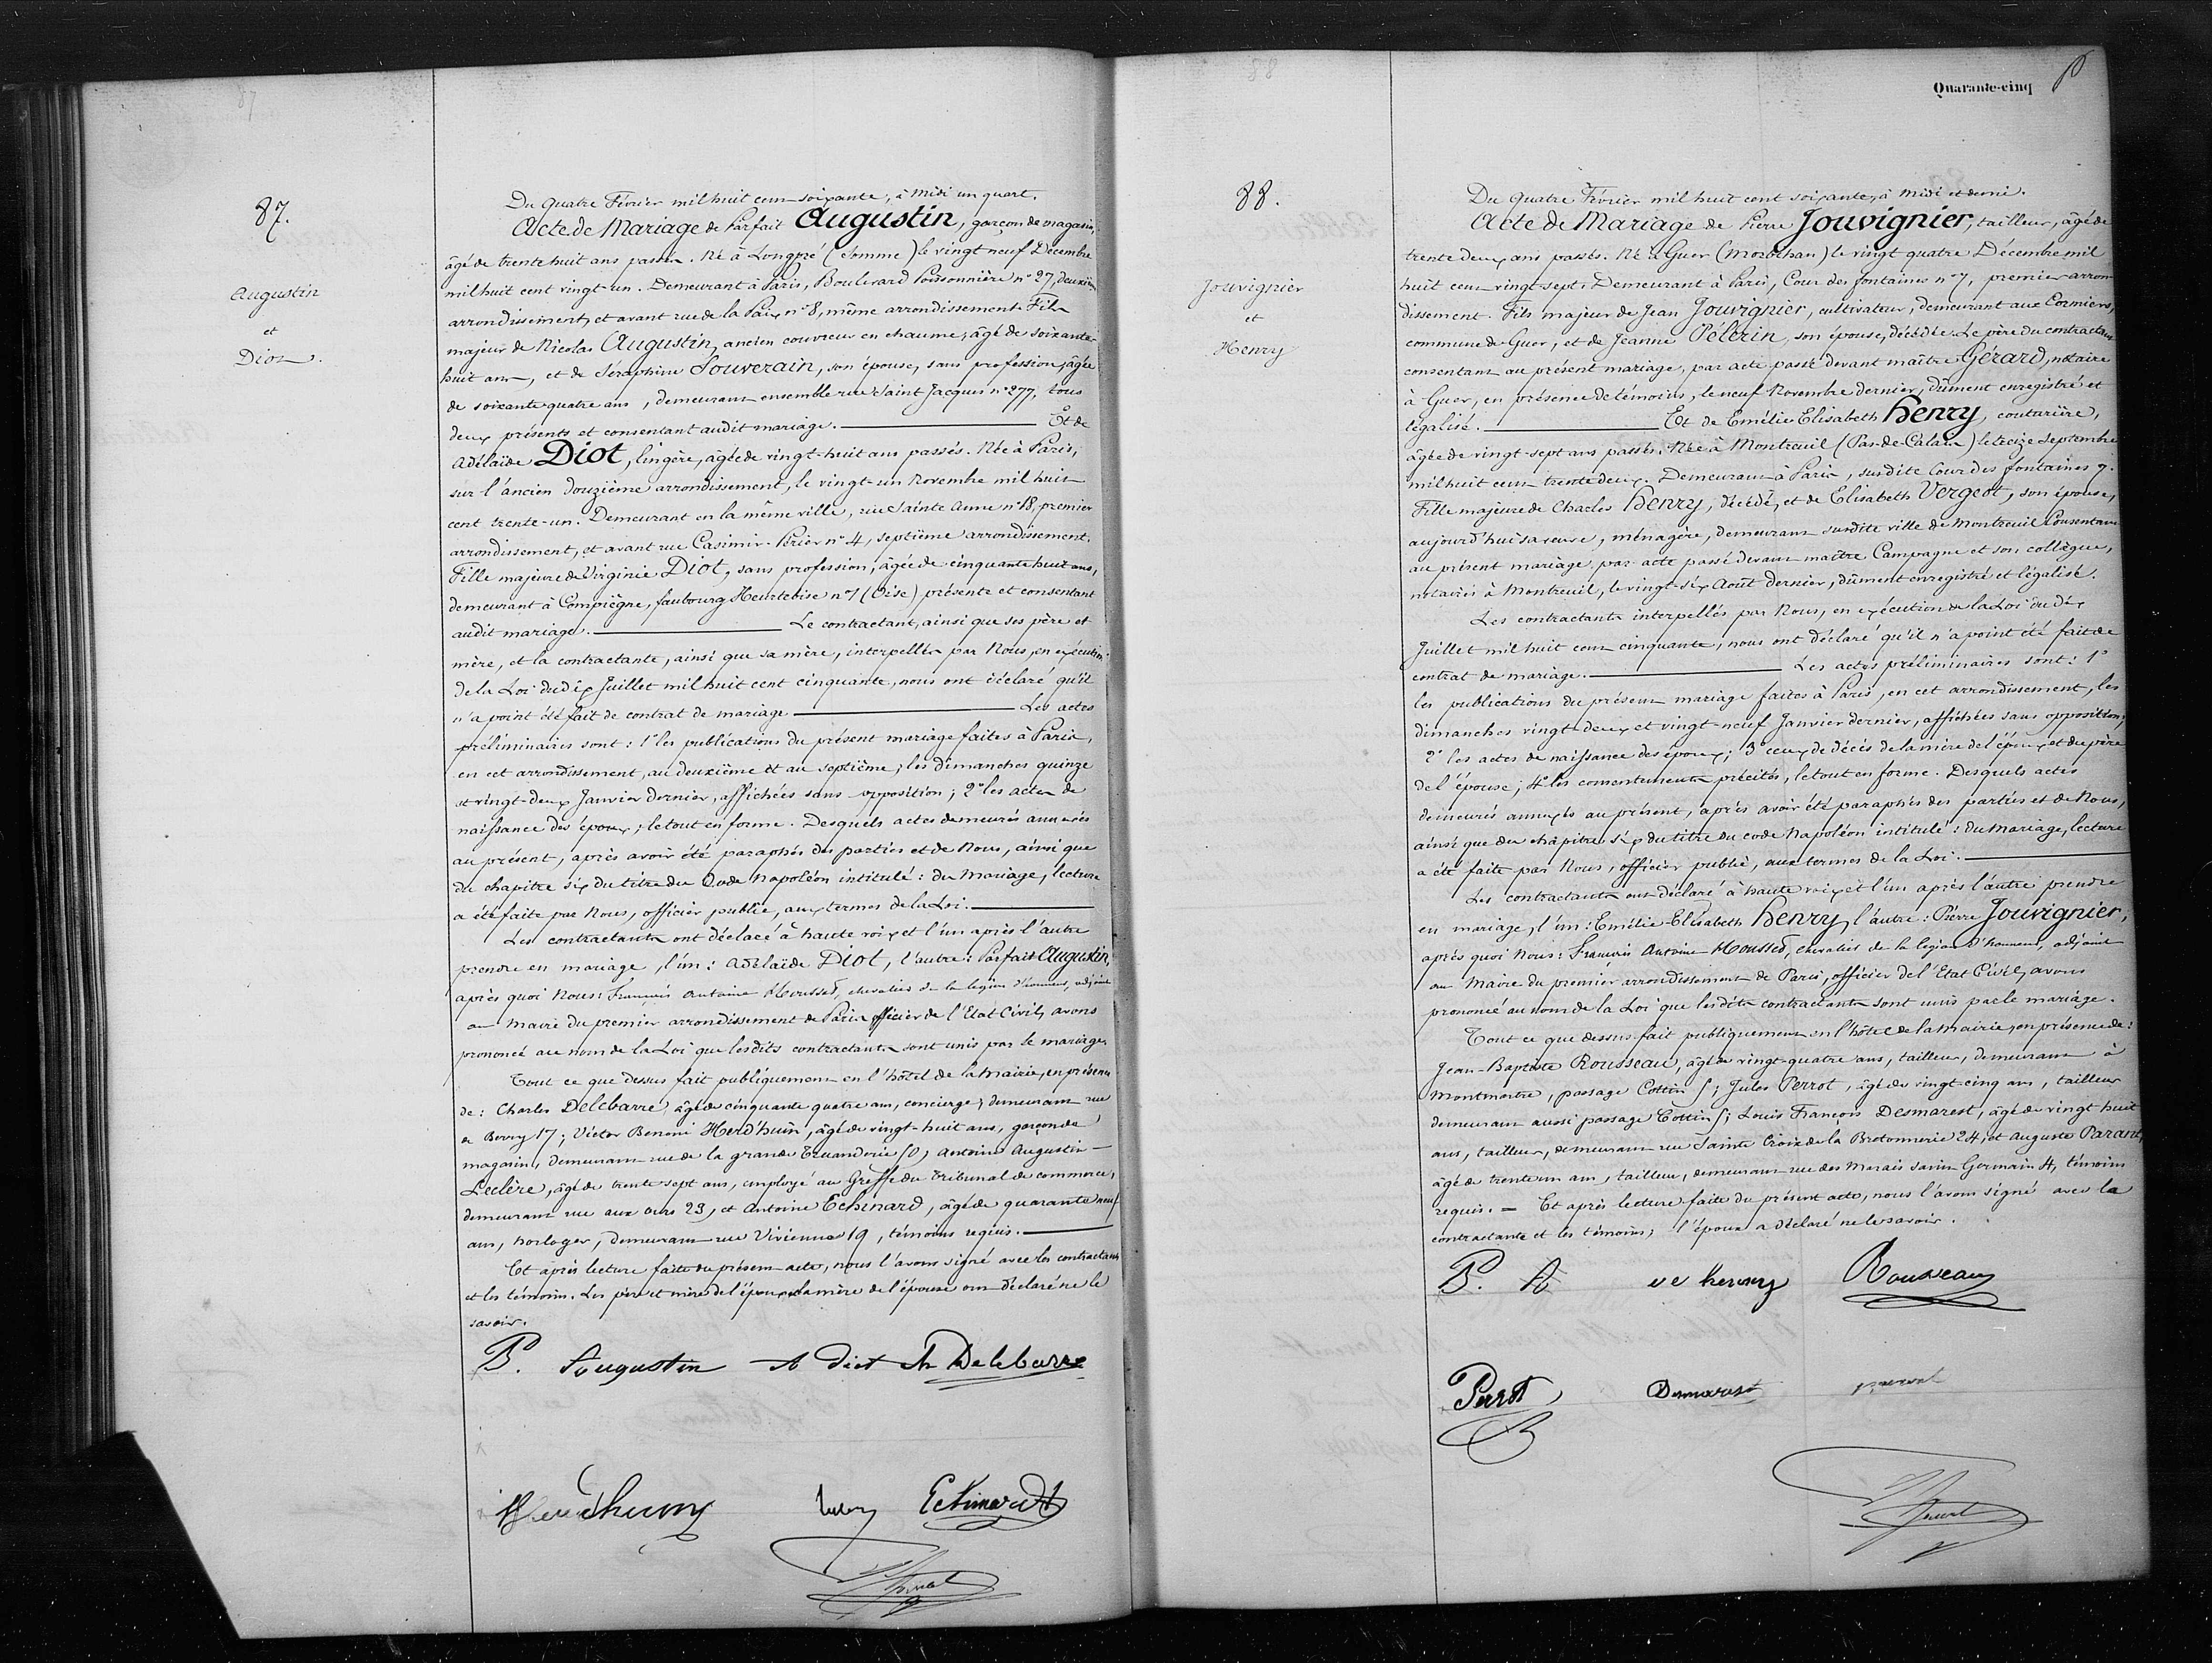 87
87.
Augustin
et
Diot.
Du quatre Février mil huit cent soixante, à Midi un quart.
Acte de Mariage de Parfait Augustin, garçon de magasin,
âgé de trente huit ans passés. Né à Longpré (Somme) le vingt neuf Décembre
mil huit cent vingt-un. Demeurant à Paris, Boulevard Poissonnière n° 27, deuxième
arrondissement, et avant rue de la Paix n° 8, même arrondissement. Fils
majeur de Nicolas Augustin, ancien couvreur en chaume, âgé de soixante-
huit ans, et de Séraphine Souverain, son épouse, sans profession, âgée
de soixante quatre ans, demeurant ensemble rue Saint Jacques n° 277, tous
deux présents et consentant audit mariage. Et de
Adélaïde Diot, lingère, âgée de vingt-huit ans passés. Née à Paris,
sur l'ancien douzième arrondissement, le vingt-un Novembre mil huit
cent trente-un. Demeurant en la même ville, rue Sainte Anne n° 18, premier
arrondissement, et avant rue Casimir-Périer n° 4, septième arrondissement.
Fille majeure de Virginie Diot, sans profession, âgée de cinquante huit ans,
demeurant à Compiègne, faubourg Heurtebise n° 1 (Oise) présente et consentant
audit mariage. Le contractant, ainsi que ses père et
mère, et la contractante, ainsi que sa mère, interpellés par Nous, en exécution
de la Loi du dix Juillet mil huit cent cinquante, nous ont déclaré qu'il
n'a point été fait de contrat de mariage Les actes
préliminaires sont : 1° les publications du présent mariage faites à Paris,
en cet arrondissement, au deuxième et au septième, les dimanches quinze
et vingt-deux Janvier dernier, affichées sans opposition ; 2° les actes de
naissance des époux ; le tout en forme. Desquels actes demeurés annexés
au présent, après avoir été paraphés des parties et de Nous, ainsi que
du chapitre six du titre du Code Napoléon intitulé : du Mariage, lecture
a été faite par Nous, officier public, aux termes de la Loi.
Les contractants ont déclaré à haute voix et l'un après l'autre
prendre en mariage, l'un : Adélaïde Diot, l'autre : Parfait Augustin,
après quoi Nous : François Antoine Moussed, chevalier de la légion d'honneur, adjoint
au Maire du premier arrondissement de Paris officier de l'Etat Civil, avons
prononcé au nom de la Loi que lesdits contractants sont unis par le mariage.
Tout ce que dessus fait publiquement en l'hôtel de la Mairie, en présence
de : Charles Delebarre, âgé de cinquante quatre ans, concierge, demeurant rue
de 17 ; Victor Benoni Herd'huin, âgé de vingt-huit ans, garçon de
magasin, demeurant rue de la grande Truanderie 10, Antoine Augustin
Leclère, âgé de trente sept ans, employé au Greffe du Tribunal de commerce,
demeurant rue aux ours 23, et Antoine Echinard, âgé de quarante neuf
ans, horloger, demeurant rue Vivienne 19, témoins requis.
Et après lecture faite du présent acte, nous l'avons signé avec les contractants
et les témoins. Les père et mère de l'époux et la mère de l'épouse ont déclaré ne le
savoir.
P. Augustin A diot Ch Delebarre
Herdhuin Echinard
88
Quarante-cinq
88.
Jouvignier
et
Henry
Du quatre Février mil huit cent soixante, à Midi et demi.
Acte de Mariage de Pierre Jouvignier, tailleur, âgé de
trente deux ans passés. Né à Guer (Morbihan) le vingt quatre Décembre mil
huit cent vingt-sept. Demeurant à Paris, Cour des fontaines n° 7, premier arron-
dissement. Fils majeur de Jean Jouvignier, cultivateur, demeurant aux Cormiers,
commune de Guer, et de Jeanne Pélerin, son épouse, décédée. Le père du contractant
consentant au présent mariage, par acte passé devant maître Gérard, notaire
à Guer, en présence de témoins, le neuf Novembre dernier, dûment enregistré et
légalisé. Et de Emélie Elisabeth Henry, couturière,
âgée de vingt-sept ans passés. Née à Montreuil (Pas-de-Calais) le treize Septembre
mil huit cent trente deux. Demeurant à Paris, susdite Cour des fontaines 7.
Fille majeure de Charles Henry, décédé, et de Elisabeth Vergeot, son épouse,
aujourd'hui sa veuve, ménagère, demeurant susdite ville de Montreuil Consentant
au présent mariage par acte passé devant maître Campagne et son collègue,
notaires à Montreuil, le vingt-six Août dernier, dûment enregistré et légalisé.
Les contractants interpellés par Nous, en exécution de la Loi du dix
Juillet mil huit cent cinquante, nous ont déclaré qu'il n'a point été fait de
contrat de mariage. Les actes préliminaires sont : 1°
les publications du présent mariage faites à Paris, en cet arrondissement, les
dimanches vingt-deux et vingt-neuf Janvier dernier, affichées sans opposition ;
2° les actes de naissance des époux ; 3° ceux de décès de la mère de l'époux et du père
de l'épouse ; 4° les consentements précités, le tout en forme. Desquels actes
demeurés annexés au présent, après avoir été paraphés des parties et de Nous,
ainsi que du chapitre six du titre du code Napoléon intitulé : du Mariage, lecture
a été faite par Nous, officier public, aux termes de la Loi.
Les contractants ont déclaré à haute voix et l'un après l'autre prendre
en mariage, l'un : Emélie Elisabeth Henry, l'autre : Pierre Jouvignier,
après quoi Nous : François Antoine Moussed, chevalier de la légion d'honneur, adjoint
au Maire du premier arrondissement de Paris, officier de l'Etat Civil, avons
prononcé au nom de la Loi que lesdits contractants sont unis par le mariage.
Tout ce que dessus fait publiquement en l'hôtel de la Mairie, en présence de :
Jean-Baptiste Rousseau, âgé de vingt-quatre ans, tailleur, demeurant à
Montmartre, passage Cottin 5 ; Jules Perrot, âgé de vingt-cinq ans, tailleur
demeurant aussi passage Cottin 5 ; Louis François Desmarest, âgé de vingt huit
ans, tailleur, demeurant rue Sainte Croix de la Bretonnerie 24, et Auguste Parant,
âgé de trente un ans, tailleur, demeurant rue des Marais Saint Germain 4, témoins
requis. Et après lecture faite du présent acte, nous l'avons signé avec la
contractante et les témoins, l'époux a déclaré ne le savoir.
P. A e e henry Rousseau
Perrot Desmarest